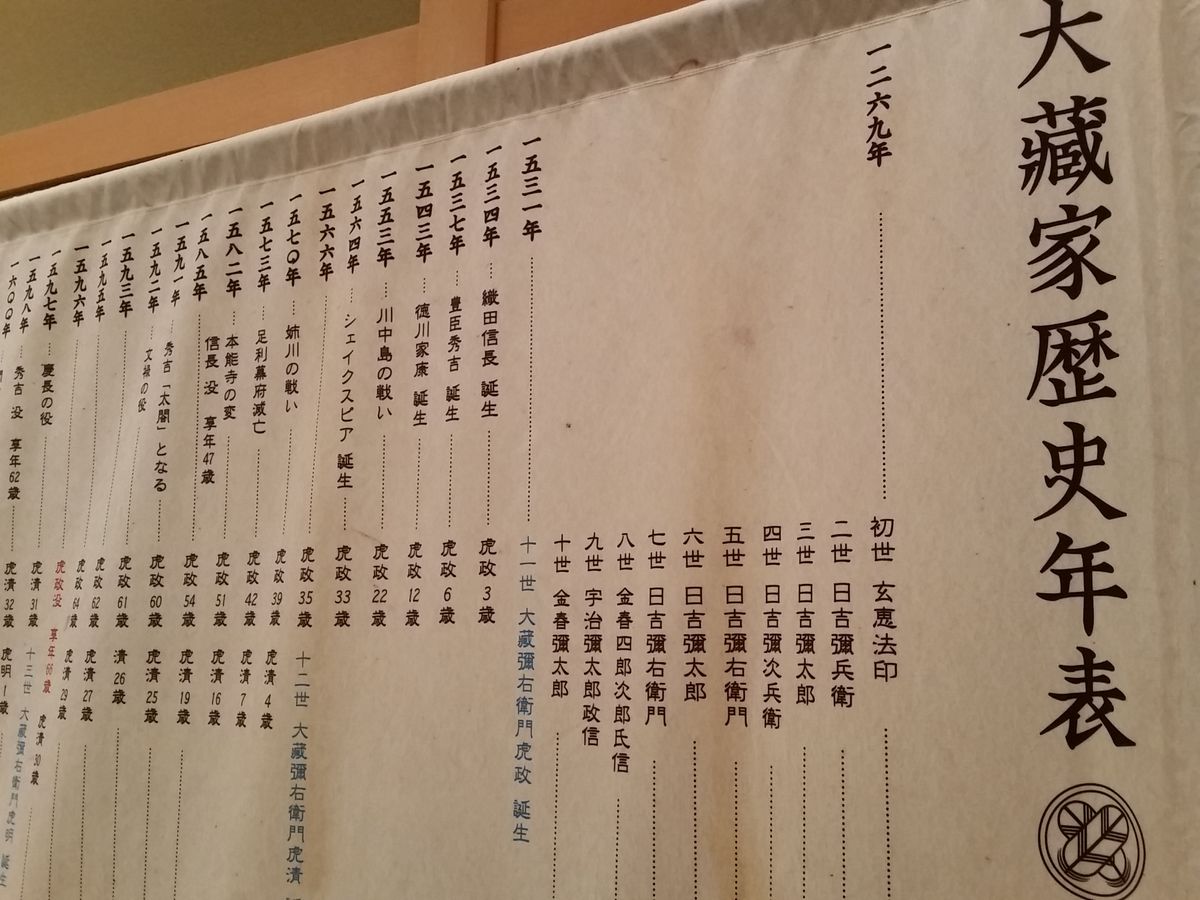 大藏家歴史年表
一二六九年 初世 玄恵法印
二世 日吉彌兵衛
三世 日吉彌太郎
四世 日吉彌次兵衛
五世 日吉彌右衛門
六世 日吉彌太郎
七世 日吉彌右衛門
八世 金春四郎次郎氏信
九世 宇治彌太郎政信
十世 金春彌太郎
一五三一年 十一世 大藏彌右衛門虎政 誕生
一五三四年 織田信長 誕生 虎政 3歳
一五三七年 豊臣秀吉 誕生 虎政 6歳
一五四三年 徳川家康 誕生 虎政 12歳
一五五三年 川中島の戦い 虎政 22歳
一五六四年 シェイクスピア 誕生 虎政 33歳
一五六六年 虎政 35歳 十二世 大藏彌右衛門虎清
一五七〇年 姉川の戦い 虎政 39歳 虎清 4歳
一五七三年 足利幕府滅亡 虎政 42歳 虎清 7歳
一五八二年 本能寺の変 虎政 51歳 虎清 16歳
信長 没 享年47歳
一五八五年 虎政 54歳 虎清 19歳
一五九一年 秀吉「太閤」となる 虎政 60歳 虎清 25歳
一五九二年 文禄の役 虎政 61歳 清 26歳
一五九三年 虎政 62歳 虎清 27歳
一五九五年 虎政 64歳 虎清 29歳
一五九六年 虎政没 享年66歳 虎清 30歳
一五九七年 慶長の役 虎清 31歳 十三世 大藏彌右衛門虎明 誕生
一五九八年 秀吉 没 享年62歳 虎清 32歳 虎明 1歳
一六〇〇年